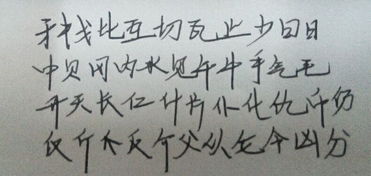 牙戈比互切瓦止少曰日
中贝冈内水见午牛手气毛
升夭长仁什片仆化仇币仍
仅斤爪反介父从仑今凶分